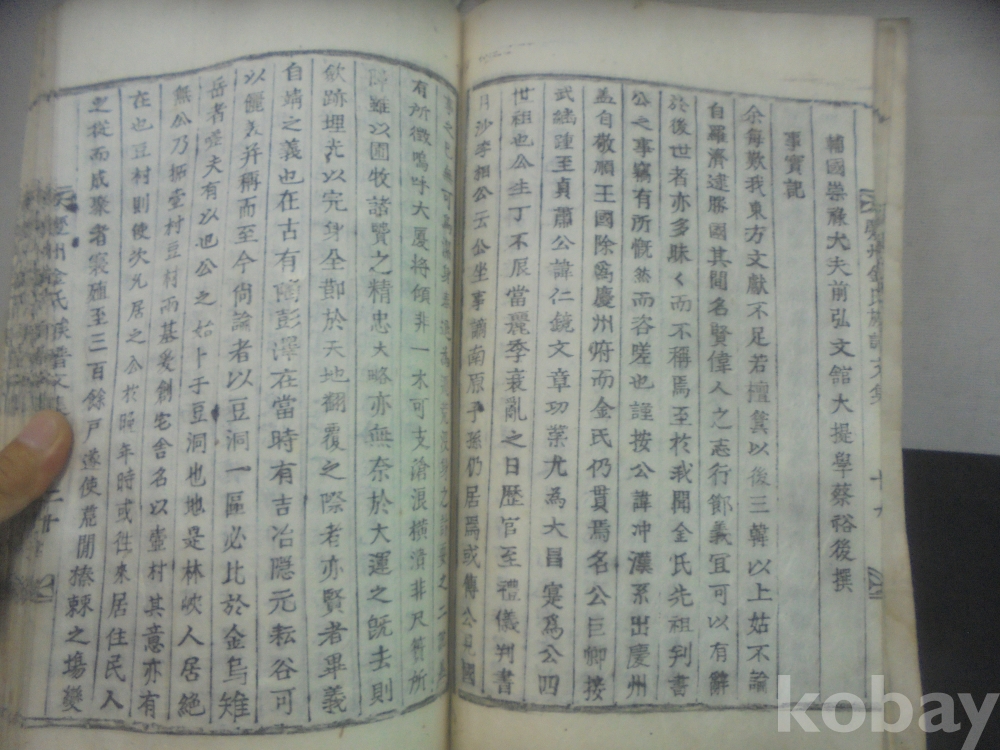 輔國崇祿大夫前弘文館大提學蔡裕後撰
事實記
余每歎我東方文獻不足若檀箕以後三韓以上姑不論
自羅濟逮勝國其間名賢偉人之志行節義宜可以有辭
於後世者亦多昧々而不稱焉至於我聞金氏先祖判書
公之事竊有所慨然而咨嗟也謹按公諱冲漢系出慶州
盖自敬順王國除爲慶州府而金氏仍貫焉名公巨卿接
武綿踵至貞肅公諱仁鏡文章功業尤爲大昌寔爲公四
世祖也公生丁不辰當麗季衰亂之日歷官至禮儀判書
月沙李相公云公坐事謫南原子孫仍居焉或傳公見國
有所徵嗚呼大厦將傾非一木可支滄浪橫潰非尺筠所
障雖以圃牧諸賢之精忠大略亦無奈於大運之旣去則
斂跡埋光以完身全節於天地翻覆之際者亦賢者畢義
自靖之義也在古有陶彭澤在當時有吉冶隱元耘谷可
以儷美并稱而至今尙論者以豆洞一區必比於金烏雉
岳者嗟夫有以也公之始卜于豆洞也地是林峽人居絶
無公乃
村豆村而基爰創宅舍名以壺村其意亦有
在也豆村則使次允居之公於暇年時或徃來居住民人
之從而成聚者寔殖至三百餘戶遂使荒閒榛棘之塲變
慶州金氏族譜文
kobay